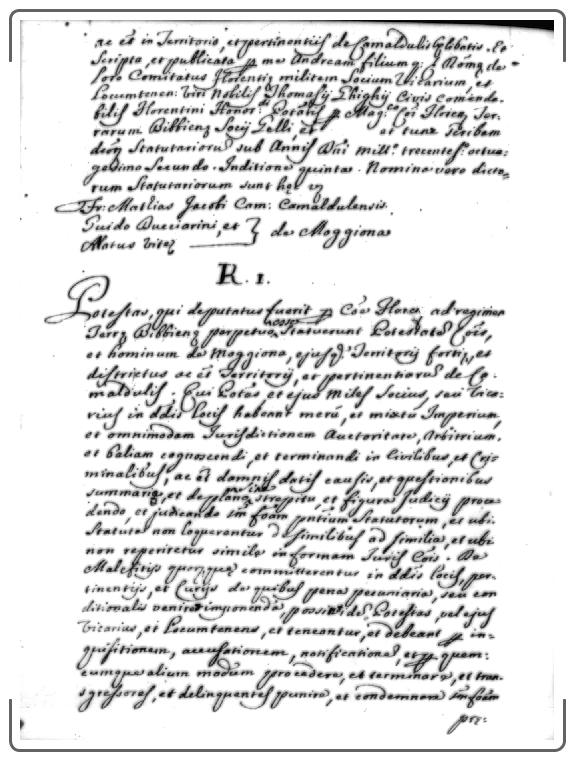 ac et in Territorio, et pertinentiis de Camaldulis Celebatis. Et
Scripta, et publicata per me Andream filium q: Nomę de
loro Comitatus Florentię militem Socium Vicarium, et
Locumtenen: Viri Nobilis Thomasij Ghighij Civis comenda-
bilis Florentini Honor: Potatis per Mag: Coi Floren: Ter-
rarum Bibbienę Socij Gelli, et et tunc scribem
deor Statutarioru sub Annis Dni mill.o trecentes.o octua-
gesimo Secundo. Inditione quinta. Nomina vero dicto-
rum Statutariorum sunt hęc vz
Fr: Mathias Jacobi Cam: Camaldulensis
Guido Bucciarini, et } de Moggiona
Matus Vitę
R. 1.
Potestas, qui deputatus fuerit per Coe Floren ad regimen
Terrę Bibbienę perpetuo esse Statuerunt Potestate Cois,
et hominum de Moggiona, ejusq. Territorij fortię, et
districtus ac et Territorij, et pertinentiaru de Ca-
maldulis. Qui Potas et ejus Miles Socius, seu Vica-
rius in ddis locis habeant meru, et mixtu Imperium,
et omnimodam Jurisdictionem Auctoritate, Arbitrium,
et baliam cognoscendi, et terminandi in Civilibus, et Cri-
minalibus, ac et damnis datis causis, et questionibus
summarie, et de plano sine strepitu, et figura judicij proce-
dendo, et judicando sm foam pntium Statutorum, et ubi
Statuta non loquerentur d similibus ad similia, et ubi
non reperiretur simile in formam Juris Cois. De
Maleficijs quoq; quę committerentur in ddis locis, per-
tinentijs, et Curijs de quibus pena pecuniaria, seu con
ditionalis veniret imponenda, possit ide Potestas, vel ejus
Vicarius, et Locumtenens, et teneantur, et debeant per in-
quisitionem, accusationem, notificatione, et per quem-
cumque alium modum procedere, et terminare, et tran-
sgressores, et delinquentes punire, et condemnare sm foam